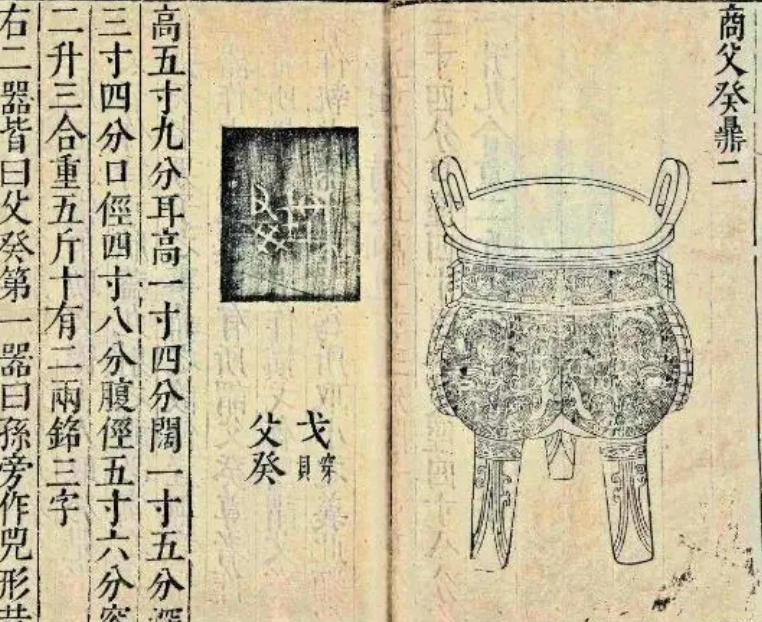 商父癸鼎二
戈穿貝
父癸
高五寸九分耳高一寸四分闊一寸五分深
三寸四分口俓四寸八分腹俓五寸六分容
二升三合重五斤十有二兩銘三字
右二器皆曰父癸第一器曰孫旁作兕形